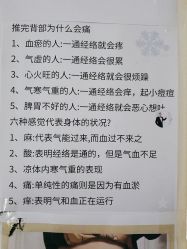 推完背部为什么会痛
1、血瘀的人:一通经络就会疼
2、气虚的人:一通经络会很累
3、心火旺的人:一通经络会很烦躁
4、气寒气重的人:一通经络会痒，起小痘痘
5、脾胃不好的人:一通经络就会恶心想吐
六种感觉代表身体的状况?
1、麻:代表气能过来,而血过不来之
2、酸:表明经络是通的，但是气血不足
3、凉体内寒气重的表现
4、痛:单纯性的痛则是因为有血淤
5、痒:表明气和血正在运行